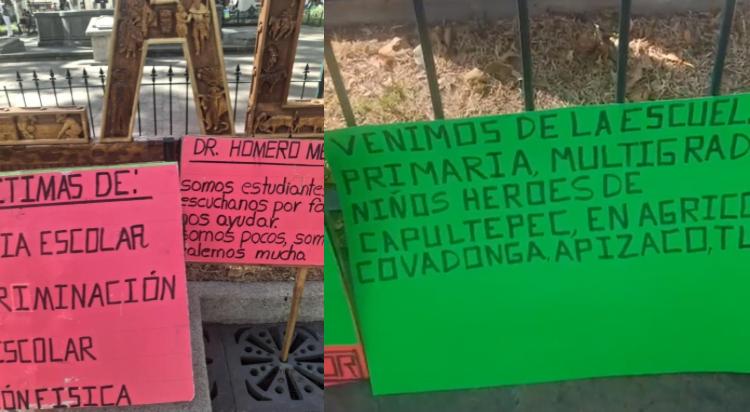 CTIMAS DE:
IA ESCOLAR
RIMINACIÓN
ESCOLAR
ÓN FISICA
DR. HOMERO ME
somos estudiante
escuchanos por fa
nos ayudar.
somos pocos, som
valemos mucha
VENIMOS DE LA ESCUEL
PRIMARIA, MULTIGRAD
NIÑOS HEROES DE
CAPULTEPEC, EN AGRICO
COVADONGA, APIZACO, TL
OR